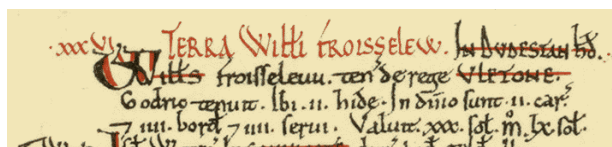 ·xxxVI· TERRA Willi froisselew. IN DVDESTAN hđ.
Wills froisseleuu. ten' de rege VLETONE.
Godric tenuit. Ibi .ii. hide. In dn̄io sunt .ii. car̄.
⁊ iiii. bord' ⁊ iiii. serui. Valuit. xxx. sol̄. m̊ lx. sol̄.